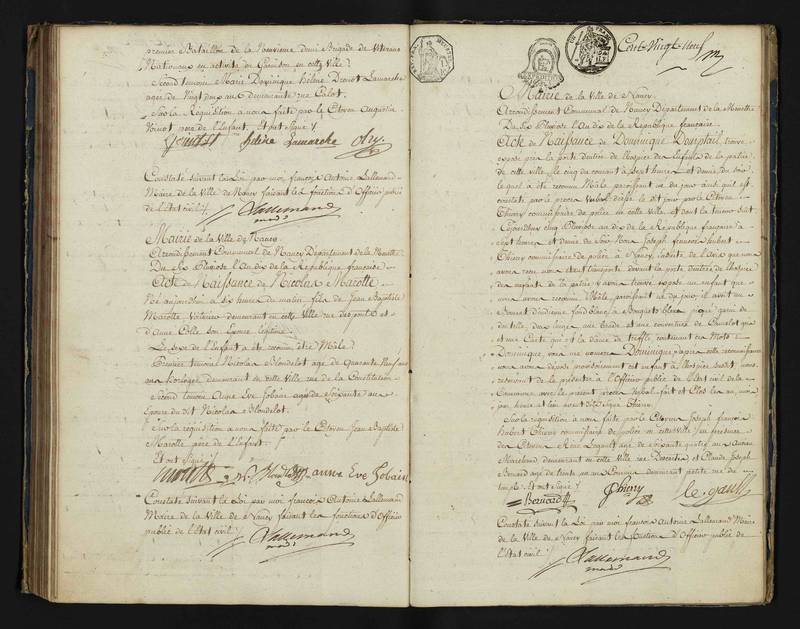 premier Bataillon de la Neuvieme demi Brigade de Veterans
Nationaux en activité de Garnison en cette Ville
Second temoin Marie Dominique hélène Drouot Lamarche
agée de Vingt deux ans demeurante rue Callot.
Sur la Requisition a nous faite par le Citoyen Augustin
pere de l'Enfant. Et ont Signé /.
hélène Lamarche
Constaté suivant la Loi par moi françois Antoine Lallemand
Maire de la Ville de Nancy faisant les fonctions d'Officier public
de l'Etat civil /.
Lallemand
maire
Mairie de la Ville de Nancy
Arrondissement Communal de Nancy Département de la Meurthe
Du Six Pluviose l'An dix de la Republique française
Acte de Naissance de Nicolas Marotte
Né aujourd'hui à six heures du matin, fils de Jean Baptiste
Marotte Voiturier demeurant en cette Ville rue des ponts et
d'Anne Colle son Epouse légitime
Le sexe de l'Enfant a été reconnu être Mâle /.
Premier temoin Nicolas Blondelot agé de Quarante Neuf ans
Horloger demeurant en cette Ville rue de la Constitution
Second temoin Anne Eve Jobain agée de Soixante ans
Epouse du dit Nicolas Blondelot.
Sur la requisition a nous faite par le Citoyen Jean Baptiste
Marotte père de l'Enfant.
Et ont Signé /.
anne Eve Jobain
Constaté suivant la Loi par moi françois Antoine Lallemand
Maire de la Ville de Nancy faisant les fonctions d'Officier
public de l'Etat civil /.
Lallemand
maire
Cent Vingt Neuf
Mairie de la Ville de Nancy
Arrondissement Communal de Nancy Département de la Meurthe
Du Six Pluviose l'An dix de la Republique française
Acte de Naissance de Dominique Domptail, trouvé
exposé près la porte d'entrée de l'hospice des Enfants de la patrie
de cette ville, le cinq du courant à Sept heures et demie du soir
lequel a été reconnu Mâle paroissant né du jour ainsi qu'il est
constaté par le procès verbal dressé le dit jour par le Citoyen
Thiery commissaire de police en cette Ville et dont la teneur Suit
Cejourd'hui cinq Pluviose an dix de la République française à
sept heures et demie du Soir, Nous Joseph françois hubert
Thiery commissaire de police à Nancy
avons trouvé exposé un enfant que
nous avons reconnu Mâle, paroissant né du jour, il avoit un
Bonnet d'indienne fond blanc à Bouquets bleus
dentelle, un lange, une bande et une couverture
et une Carte
Dominique, nous nommons Dominique
nous avons déposé provisoirement cet enfant à l'hospice susdit
de le présenter à l'Officier public de l'Etat civil de la
Commune, avec le présent procès verbal fait et Clos les an, mois
jour heure et lieu avant dits Signé Thiery.
Sur la requisition a nous faite par le Citoyen Joseph françois
hubert Thiery commissaire de police en cette Ville En présence
des Citoyens Regault agé de Soixante quatre ans Ancien
Marchand demeurant en cette Ville et Claude Joseph
Bernard agé de trente un ans Commis demeurant petite rue du
temple. Et ont Signé /.
Bernard Thiery
Constaté suivant la Loi par moi françois Antoine Lallemand Maire
de la Ville de Nancy faisant les fonctions d'Officier public de
l'Etat civil /.
Lallemand
maire